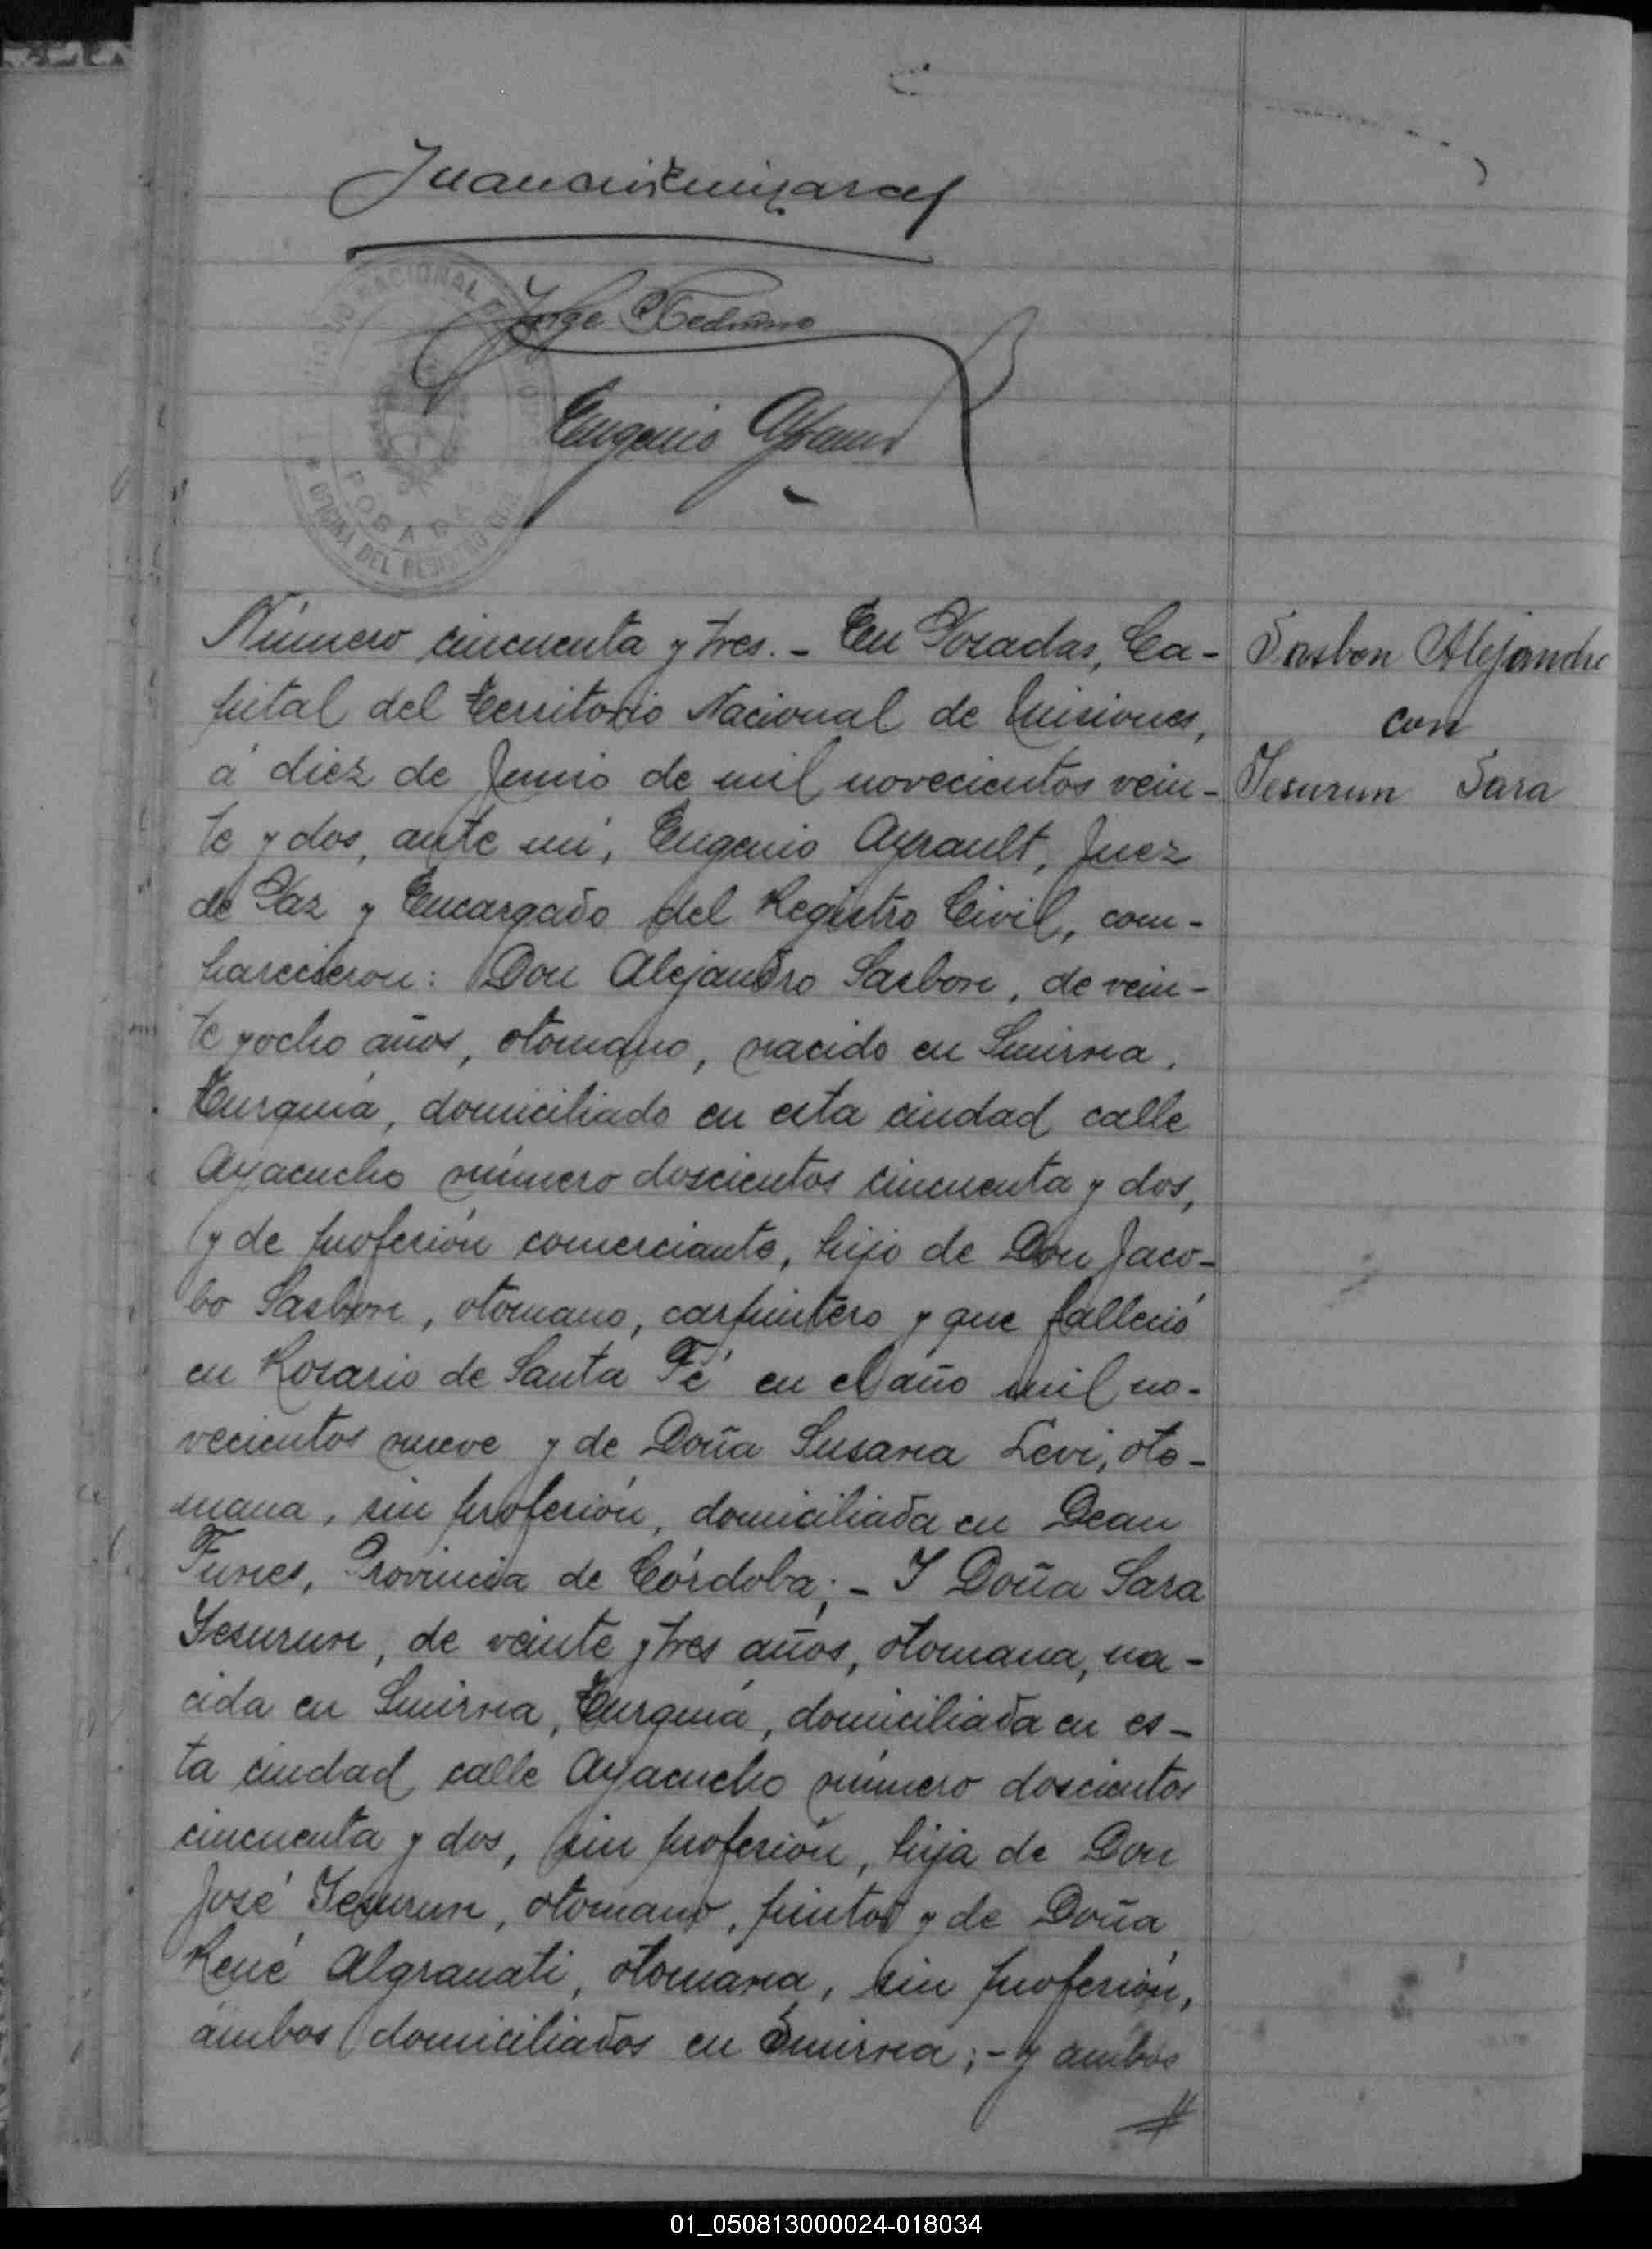 Jorge
Eugenio Ayrault
NACIONAL
POSADAS
OFICINA DEL REGISTRO CIVIL
Número cincuenta y tres. - En Posadas, Ca-
pital del territorio Nacional de Misiones,
á diez de Junio de mil novecientos vein-
te y dos, ante mí, Eugenio Ayrault, Juez
de Paz y Encargado del Registro Civil, com-
parecieron: Don Alejandro Sasbon, de vein-
te y ocho años, otomano, nacido en Smirna,
Turquía, domiciliado en esta ciudad calle
Ayacucho número doscientos cincuenta y dos,
y de profesión comerciante, hijo de Don Jaco-
bo Sasbon, otomano, carpintero y que falleció
en Rosario de Santa Fé en el año mil no-
vecientos nueve y de Doña Susana Levi, oto-
mana, sin profesión, domiciliada en Dean
Funes, Provincia de Córdoba; - Y Doña Sara
Yesurun, de veinte y tres años, otomana, na-
cida en Smirna, Turquía, domiciliada en es-
ta ciudad calle Ayacucho número doscientos
cincuenta y dos, sin profesión, hija de Don
José Yesurun, otomano, pintor y de Doña
René Algranati, otomana, sin profesión,
ambos domiciliados en Smirna; - y ambos
Sasbon Alejandro
con
Yesurun Sara
01_050813000024-018034